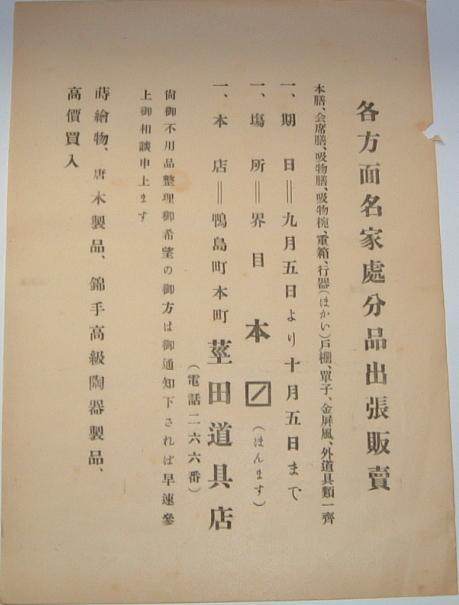 各方面名家處分品出張販賣
本膳、会席膳、吸物膳、吸物椀、重箱、行器(ほかい)戸棚、單子、金屏風、外道具類一齊
一、期日＝九月五日より十月五日まで
一、場所＝界目 本〼(ほんます)
一、本店＝鴨島町本町 莖田道具店
(電話二六六番)
尙御不用品整理御希望の御方は御通知下されば早速參
上御相談申上ます
蒔繪物、唐木製品、錦手高級陶器製品、
高價買入